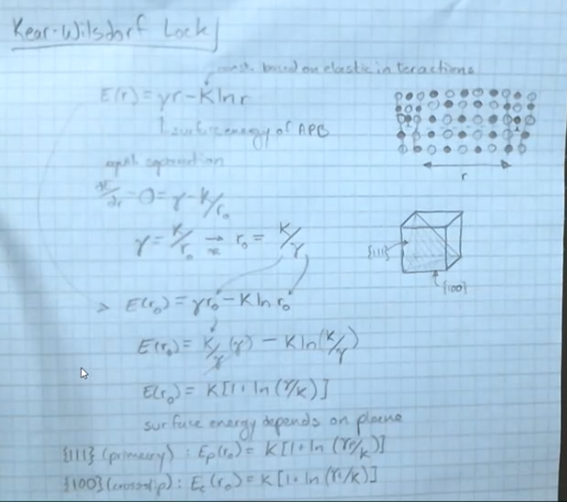 Kear-Wilsdorf Lock
const. based on elastic interactions
E(r) = γr - K ln r
surface energy of APB
equil separation
r
∂E/∂r = 0 = γ - K/r₀
γ = K/r₀ → r₀ = K/γ
{111}
{100}
E(r₀) = γr₀ - K ln r₀
E(r₀) = K/γ (γ) - K ln (K/γ)
E(r₀) = K[1 + ln (γ/K)]
surface energy depends on plane
{111} (primary) : Eₚ(r₀) = K[1 + ln (γₚ/K)]
{100} (cross slip) : E꜀(r₀) = K[1 + ln (γ꜀/K)]